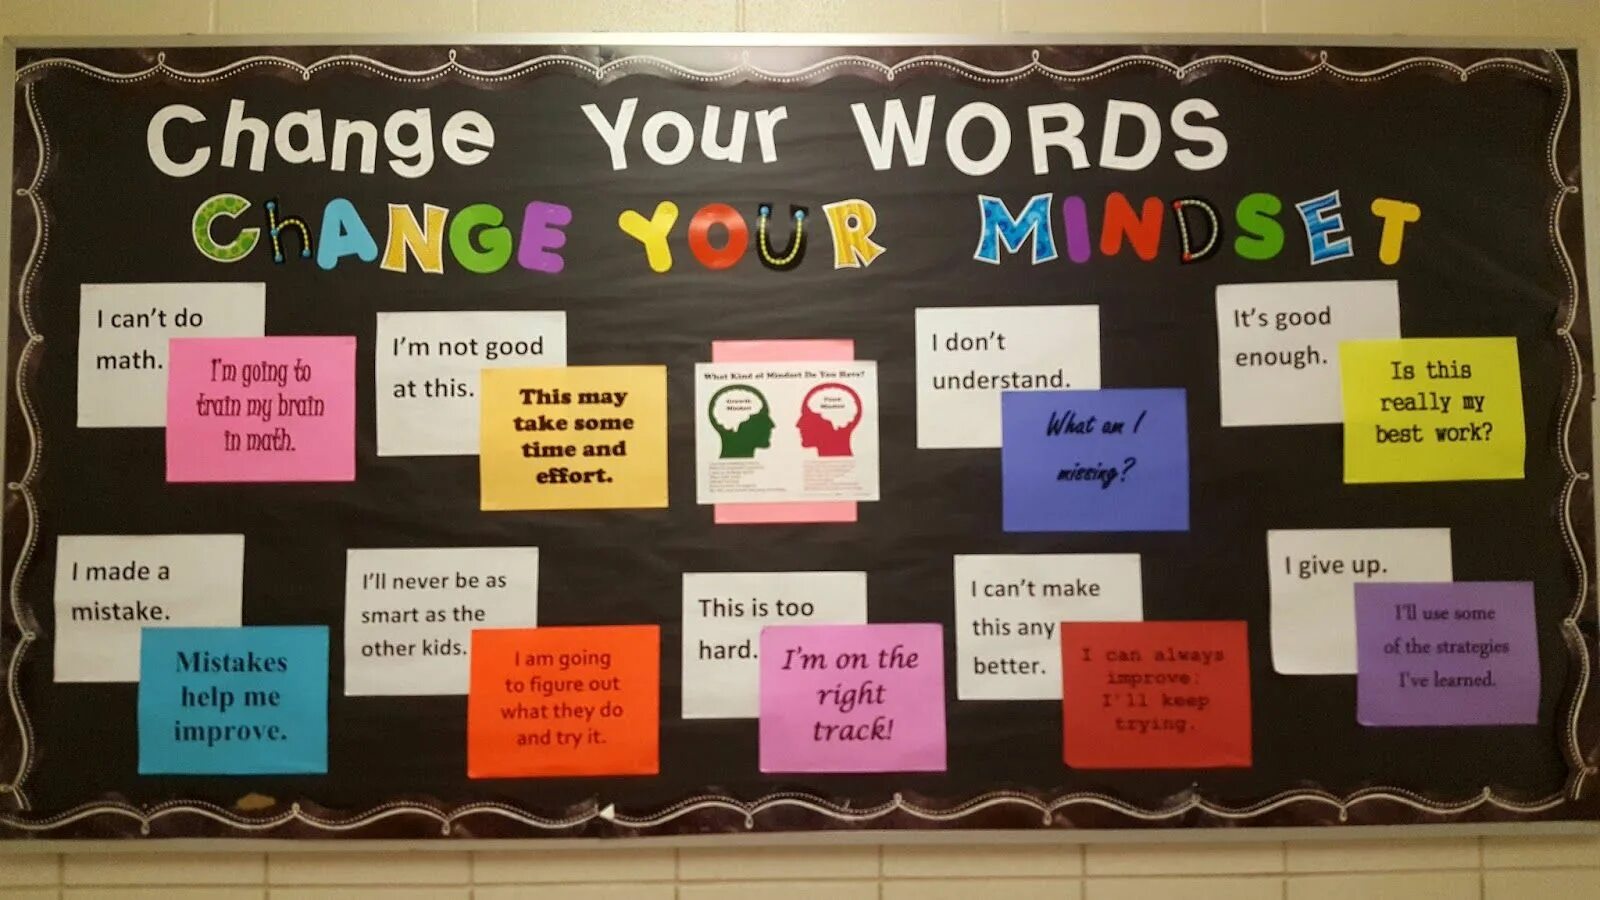 Change Your WORDS
ChANGE YOUR MINDSET
I can't do
math.
I'm going to
train my brain
in math.
I'm not good
at this.
This may
take some
time and
effort.
What Kind of Mindset Do You Have?
Growth
Mindset
Fixed
Mindset
I don't
understand.
What am I
missing?
It's good
enough.
Is this
really my
best work?
I made a
mistake.
Mistakes
help me
improve.
I'll never be as
smart as the
other kids.
I am going
to figure out
what they do
and try it.
This is too
hard.
I'm on the
right
track!
I can't make
this any
better.
I can always
improve;
I'll keep
trying.
I give up.
I'll use some
of the strategies
I've learned.